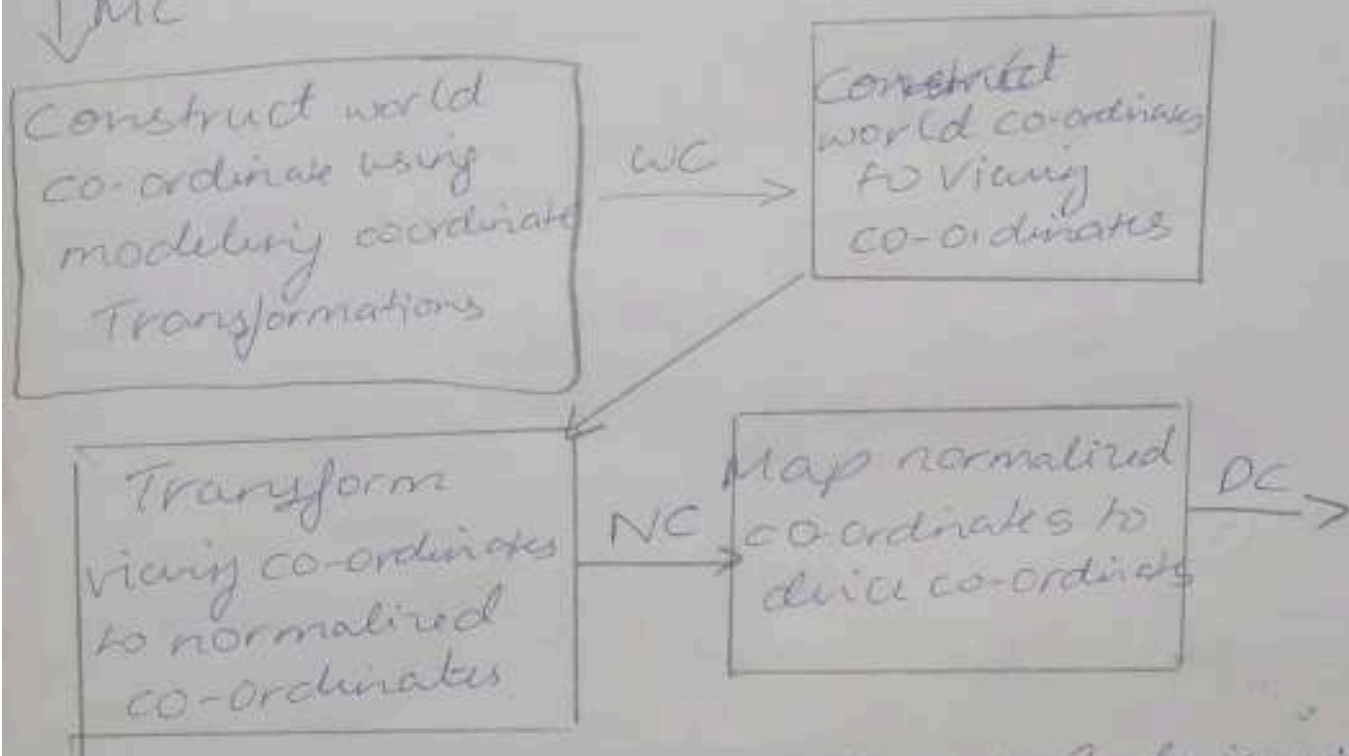 MC
Construct world
co-ordinate using
modeling coordinate
Transformations
WC
Construct
world co-ordinates
to viewing
co-ordinates
Transform
viewing co-ordinates
to normalized
co-ordinates
NC
Map normalized
co-ordinates to
device co-ordinates
DC